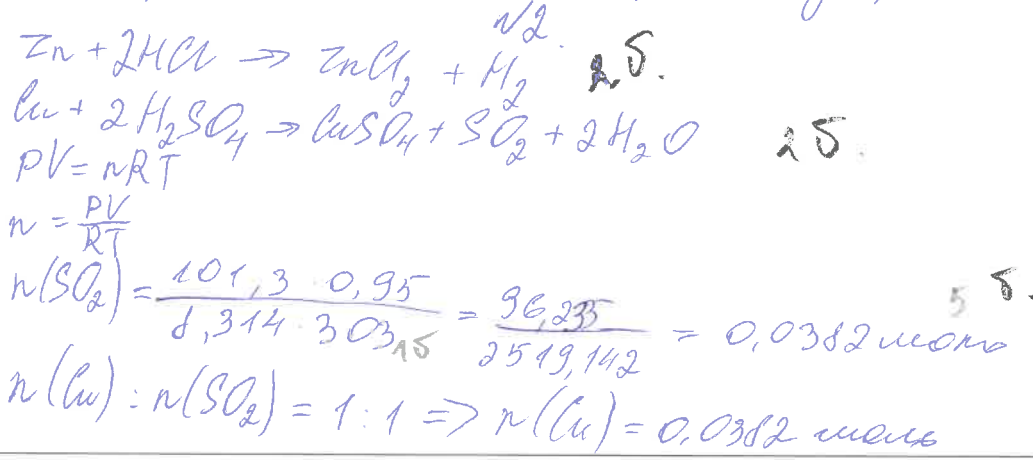 №2.
Zn + 2HCl → ZnCl₂ + H₂ 2 б.
Cu + 2H₂SO₄ → CuSO₄ + SO₂ + 2H₂O 2 б.
PV = nRT
n = PV/RT
n(SO₂) = 101,3 · 0,95 / 8,314 · 303 1б = 96,235 / 2519,142 = 0,0382 моль 5 б.
n(Cu) : n(SO₂) = 1 : 1 => n(Cu) = 0,0382 моль